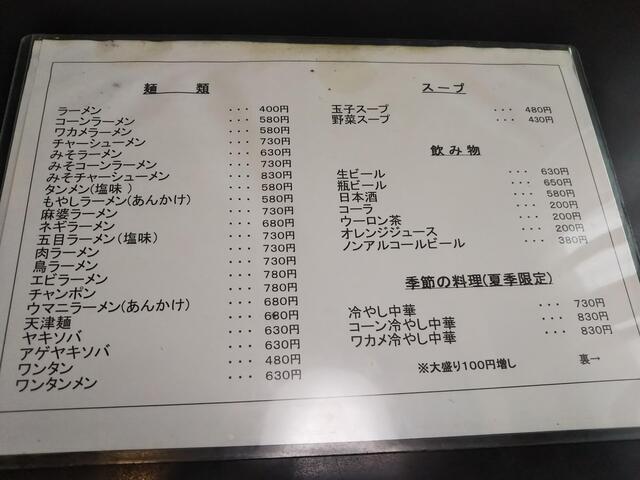 麺　類
ラーメン ・・・ 400円
コーンラーメン ・・・ 580円
ワカメラーメン ・・・ 580円
チャーシューメン ・・・ 730円
みそラーメン ・・・ 630円
みそコーンラーメン ・・・ 730円
みそチャーシューメン ・・・ 830円
タンメン(塩味 ) ・・・ 580円
もやしラーメン(あんかけ) ・・・ 580円
麻婆ラーメン ・・・ 730円
ネギラーメン ・・・ 680円
五目ラーメン(塩味) ・・・ 730円
肉ラーメン ・・・ 730円
鳥ラーメン ・・・ 730円
エビラーメン ・・・ 780円
チャンポン ・・・ 780円
ウマニラーメン(あんかけ) ・・・ 680円
天津麺 ・・・ 680円
ヤキソバ ・・・ 630円
アゲヤキソバ ・・・ 630円
ワンタン ・・・ 480円
ワンタンメン ・・・ 630円
スープ
玉子スープ ・・・ 480円
野菜スープ ・・・ 430円
飲み物
生ビール ・・・ 630円
瓶ビール ・・・ 650円
日本酒 ・・・ 580円
コーラ ・・・ 200円
ウーロン茶 ・・・ 200円
オレンジジュース ・・・ 200円
ノンアルコールビール ・・・ 380円
季節の料理(夏季限定)
冷やし中華 ・・・ 730円
コーン冷やし中華 ・・・ 830円
ワカメ冷やし中華 ・・・ 830円
※大盛り100円増し
裏→